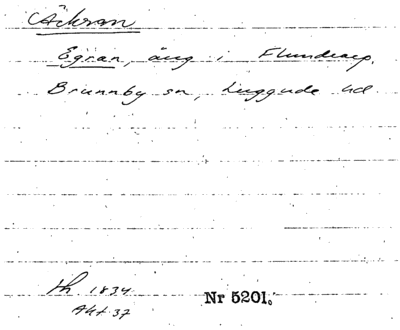 Äckran
Egran, äng i Flundrarp,
Brunnby sn, Luggude hd.
Lh 1834
Akt 37
Nr 5201.